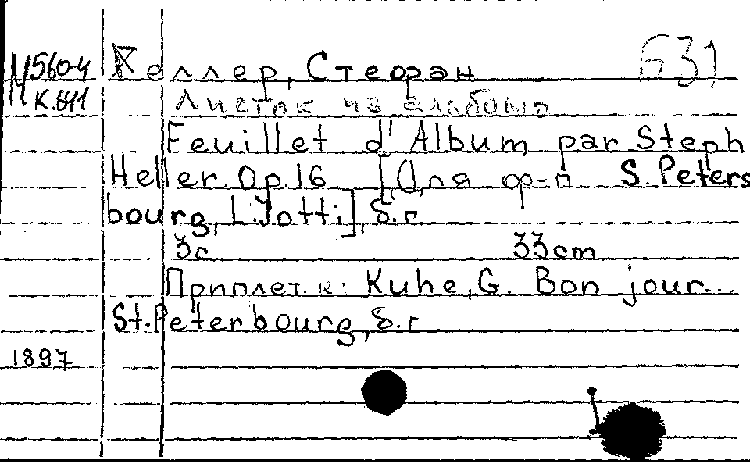 М560-4 Хеллер, Стефан 631
К.611 Листок из альбома
Feuillet d'Album par Steph
Heller. Op. 16 [Для ф-п S. Peters
bourg, L. Jotti], б.г.
3с 33cm
Приплет. к: Kuhe, G. Bon jour...
St. Peterbourg, б.г.
1897